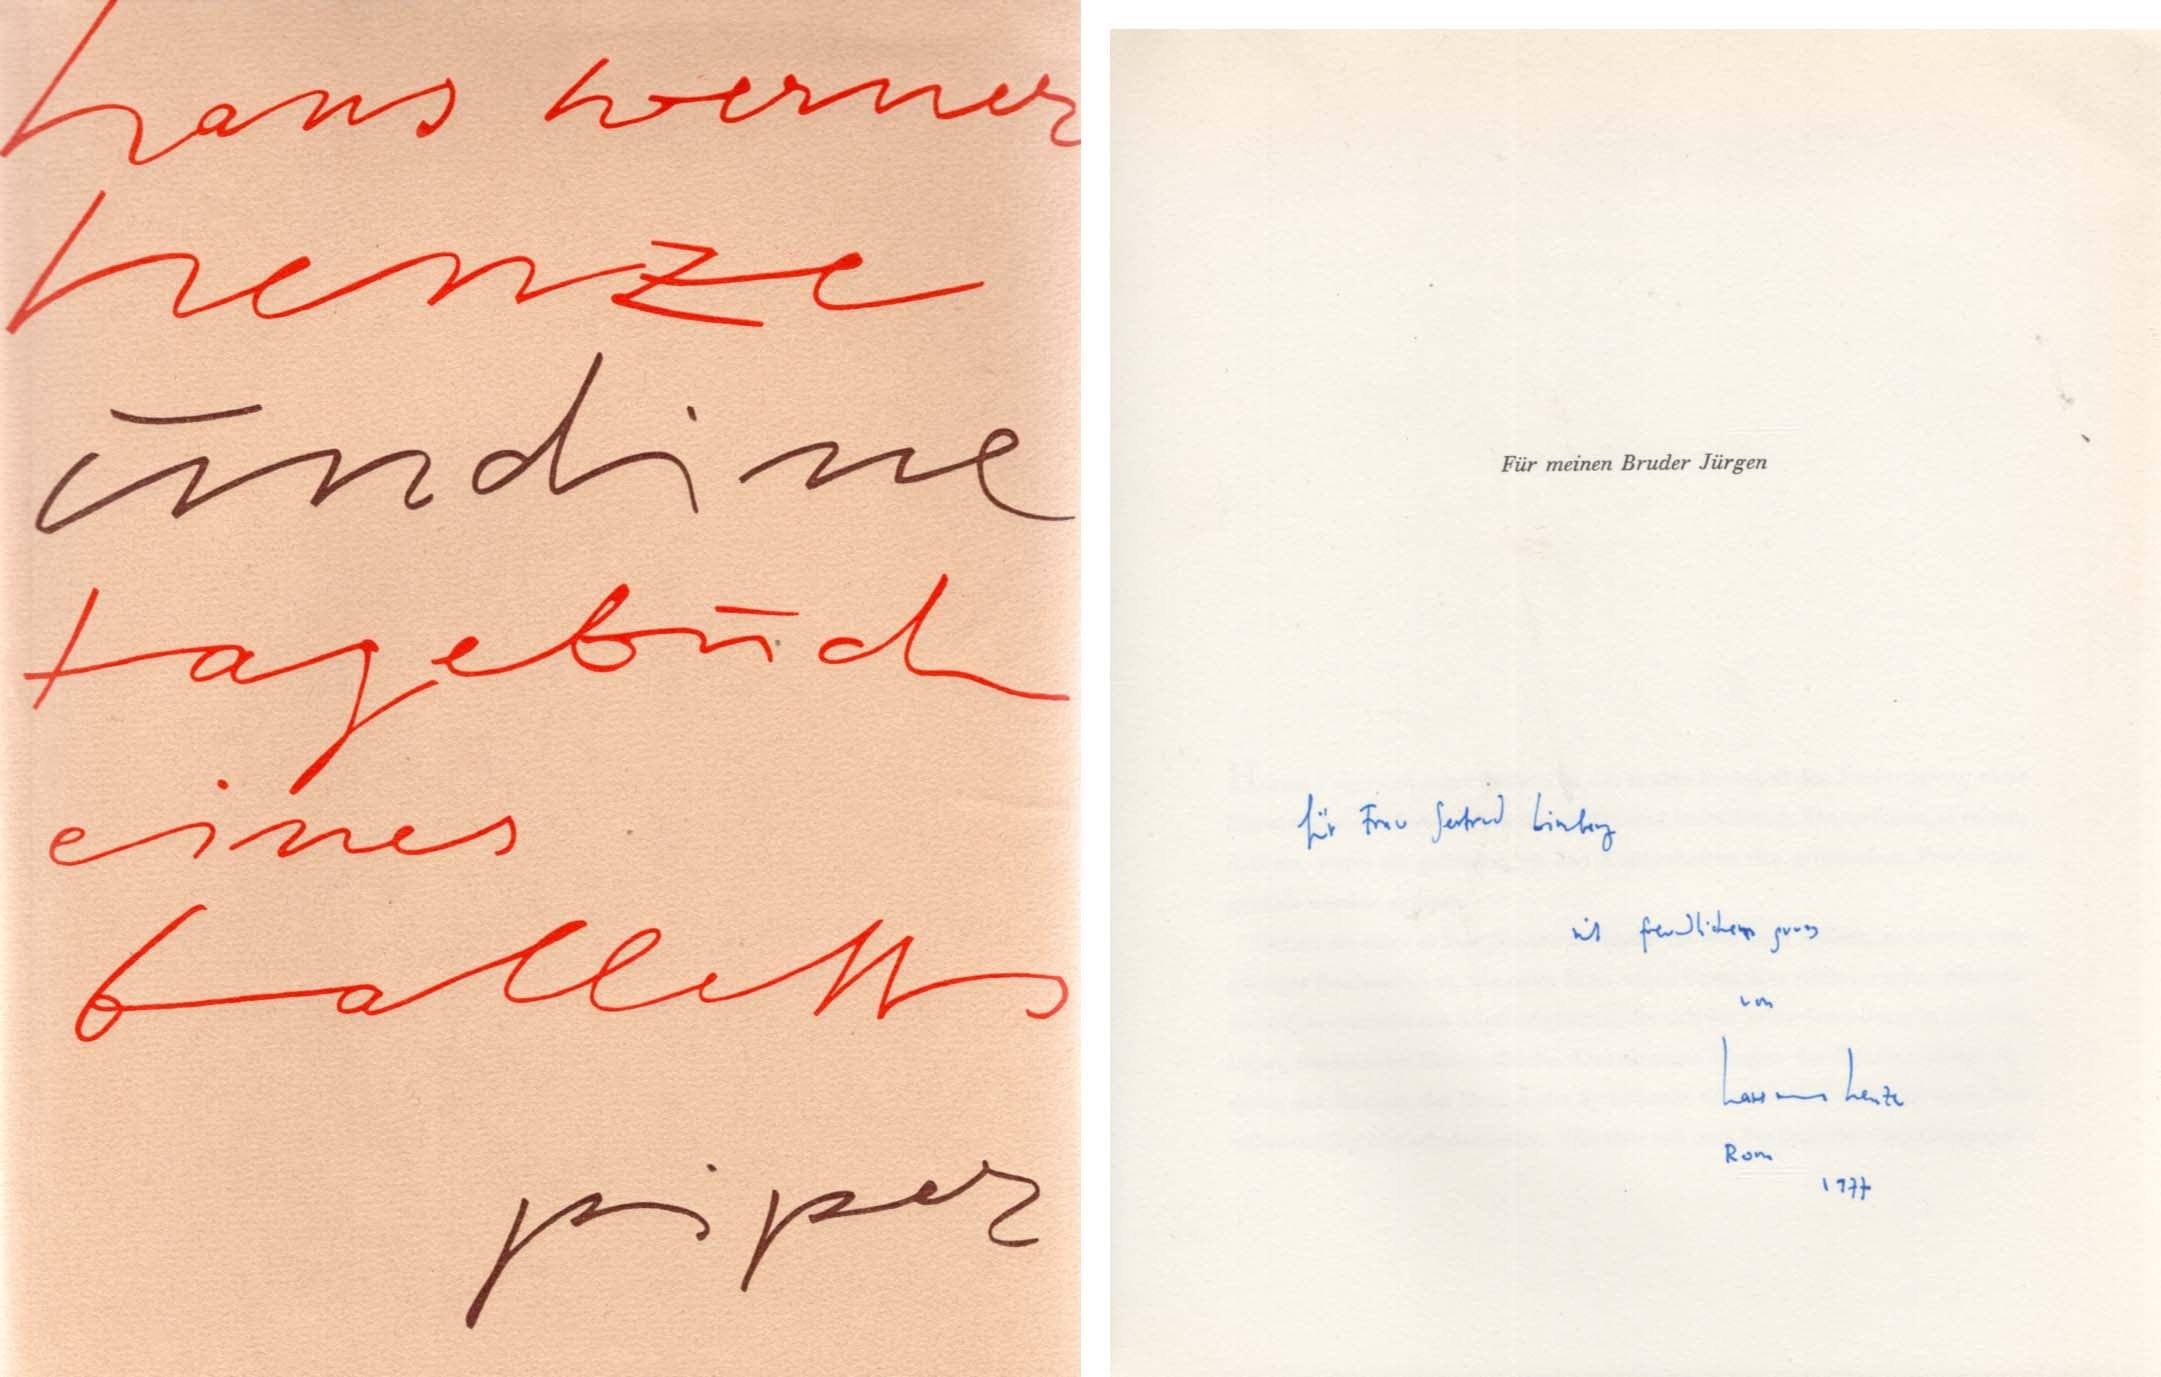 hans werner
henze
undine
tagebuch
eines
balletts
piper
Für meinen Bruder Jürgen
für Frau Gertrud
mit freundlichem gruss
von
hans werner henze
Rom
1977